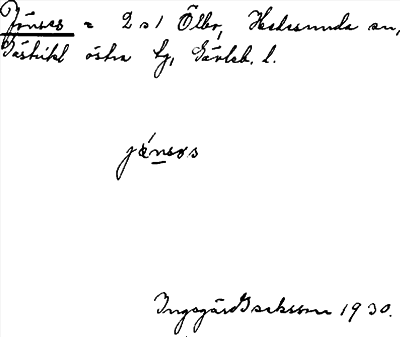 Jönses = 2a1 Ölbo, Hedesunda sn,
Gästrikl östra tg, Gävleb. l.
jǿnsəs
Ingegärd Isaksson 1930.